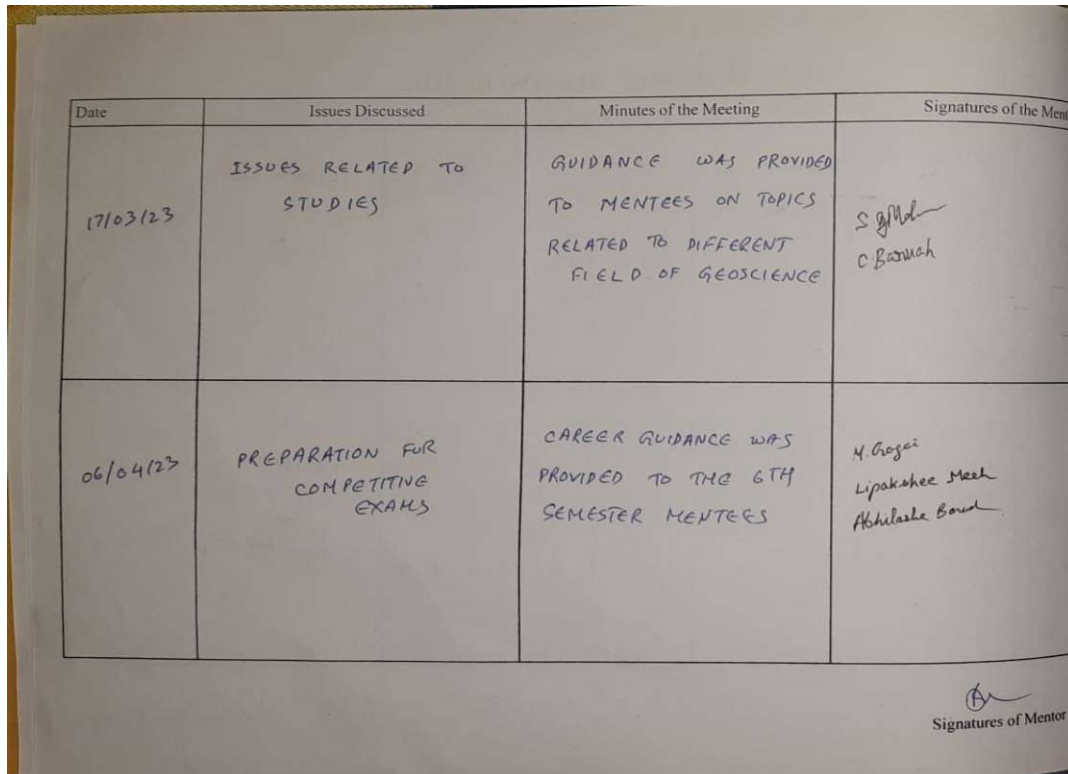 Date
Issues Discussed
Minutes of the Meeting
Signatures of the Ment
17/03/23
ISSUES RELATED TO
STUDIES
GUIDANCE WAS PROVIDED
TO MENTEES ON TOPICS
RELATED TO DIFFERENT
FIELD OF GEOSCIENCE
C. Baruah
06/04/23
PREPARATION FOR
COMPETITIVE
EXAMS
CAREER GUIDANCE WAS
PROVIDED TO THE 6TH
SEMESTER MENTEES
M. Gogoi
Lipakshee Mech
Signatures of Mentor